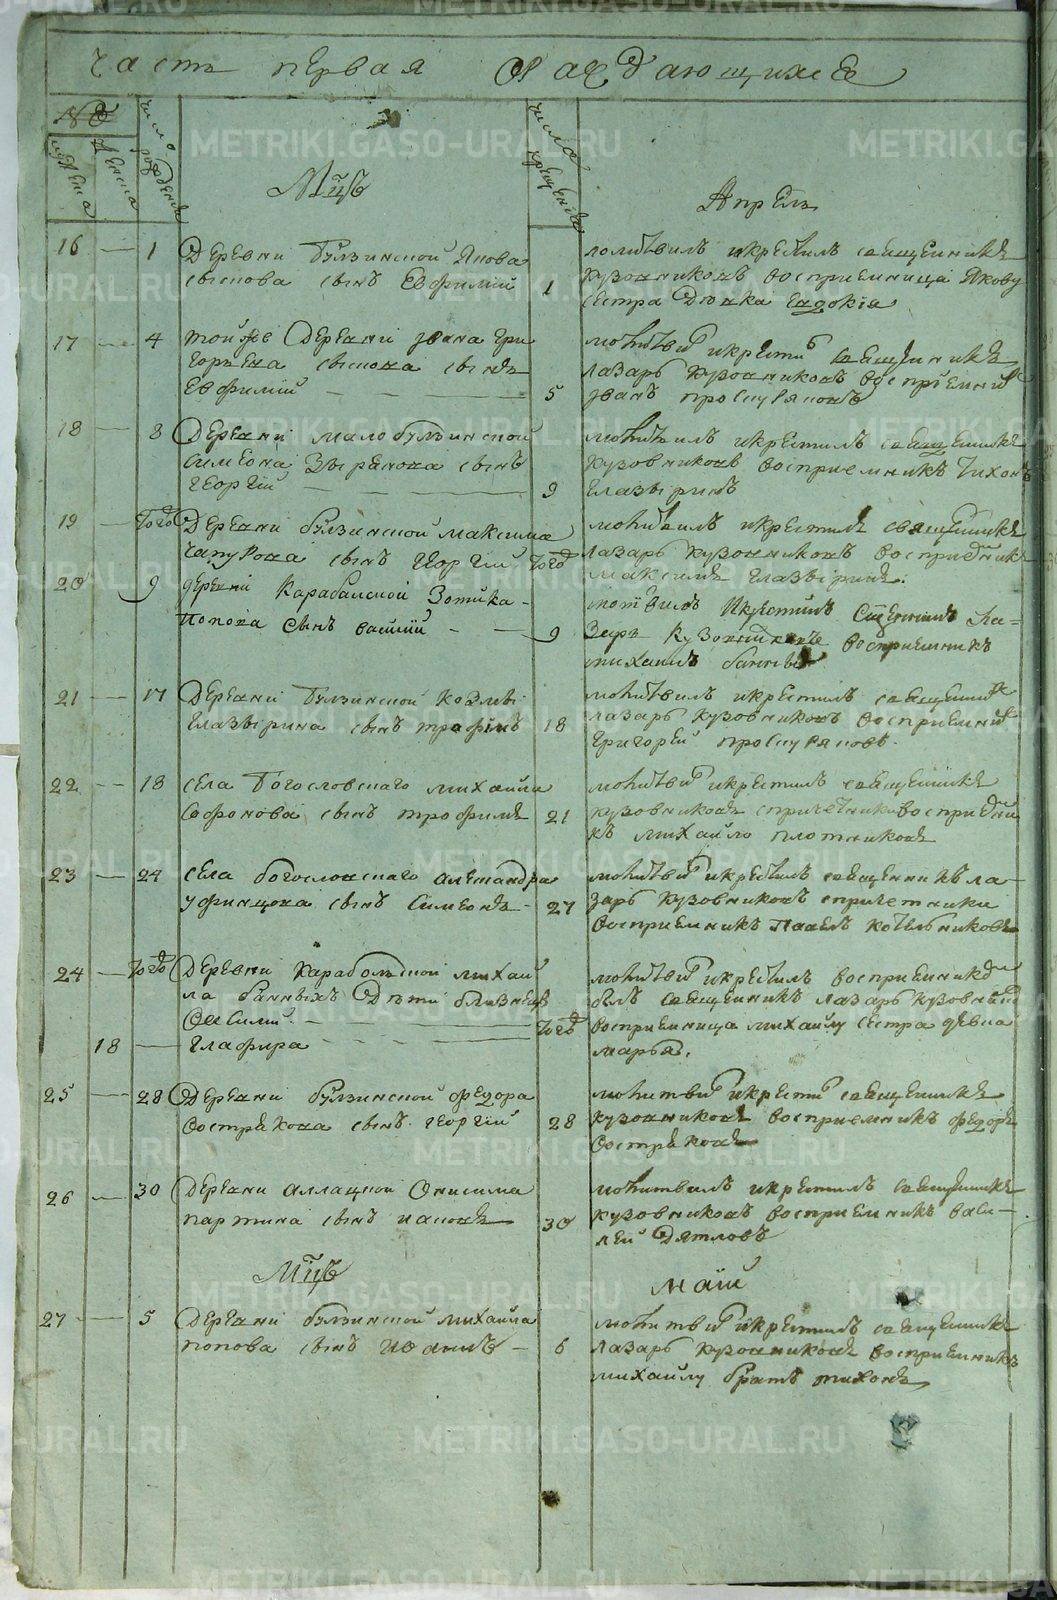 часть первая О раждающихся
№
мужеска
женска
число рождения
числа крещения
Мцъ
Апрель
16 — 1 Деревни Булзинской Якова
сыскова сынъ Евфимий
1
молитвилъ икрестилъ священникъ
кузовниковъ восприемница Якову
сестра Дюжка Евдокія
17 — 4 тойже Деревни Iвана гри
горьева сынъ
Евфимий
5
молитви икрести священникъ
лазарь кузовниковъ восприемник
Iванъ проскуряковъ
18 — 8 Деревни малобулзинской
симеона Зырянова сынъ
георгий
9
молитвилъ икрестилъ священникъ
кузовниковъ восприемникъ тихонъ
глазыринъ
19 — тогд Деревни булзинской максима
чапурова сынъ георгий
тогд
молитвилъ икрестилъ священникъ
лазарь кузовниковъ восприемникъ
максимъ глазыринъ.
20 9 деревни Карабалской Зотика
Попова сынъ василий
9
молитвилъ Икрестилъ Священникъ Ла=
Зарь Кузовниковъ восприемникъ
михаилъ банныхъ
21 — 17 Деревни Булзинской Козмы
глазырина сынъ трофимъ
18
молитвилъ икрестилъ священник
лазарь кузовниковъ восприемник
григорей проскуряковъ.
22 — 18 села Богословскаго михаила
Софонова сынъ трофимъ
21
молитви икрестилъ священникъ
кузовниковъ спричетники восприемни
къ михайло плотниковъ
23 — 24 села богословскаго александра
уфинцова сынъ Симеонъ
27
молитви икрестилъ священникъ ла
зарь кузовниковъ спричетники
восприемникъ павелъ котельниковъ
24 — тогд Деревни карабольской михаи
ла банныхъ Дети близнецы
Василий
18 — глафира
тогд
молитви икрестилъ восприемник
былъ священникъ лазарь кузовников
восприемница михаилу сестра девка
марья.
25 — 28 Деревни булзинской федора
вострякова сынъ георгий
28
молитви икрести священникъ
кузовниковъ восприемникъ федоръ
востряковъ
26 — 30 Деревни аллацкой Онисима
партина сынъ иасонъ
30
молитвилъ икрестилъ священникъ
кузовниковъ восприемникъ васи
лей Дятловъ
Мцъ
маий
27 — 5 Деревни булзинской михаила
попова сынъ иоаннъ
6
молитви икрестилъ священникъ
лазарь кузовниковъ восприемникъ
михаилу братъ тихонъ